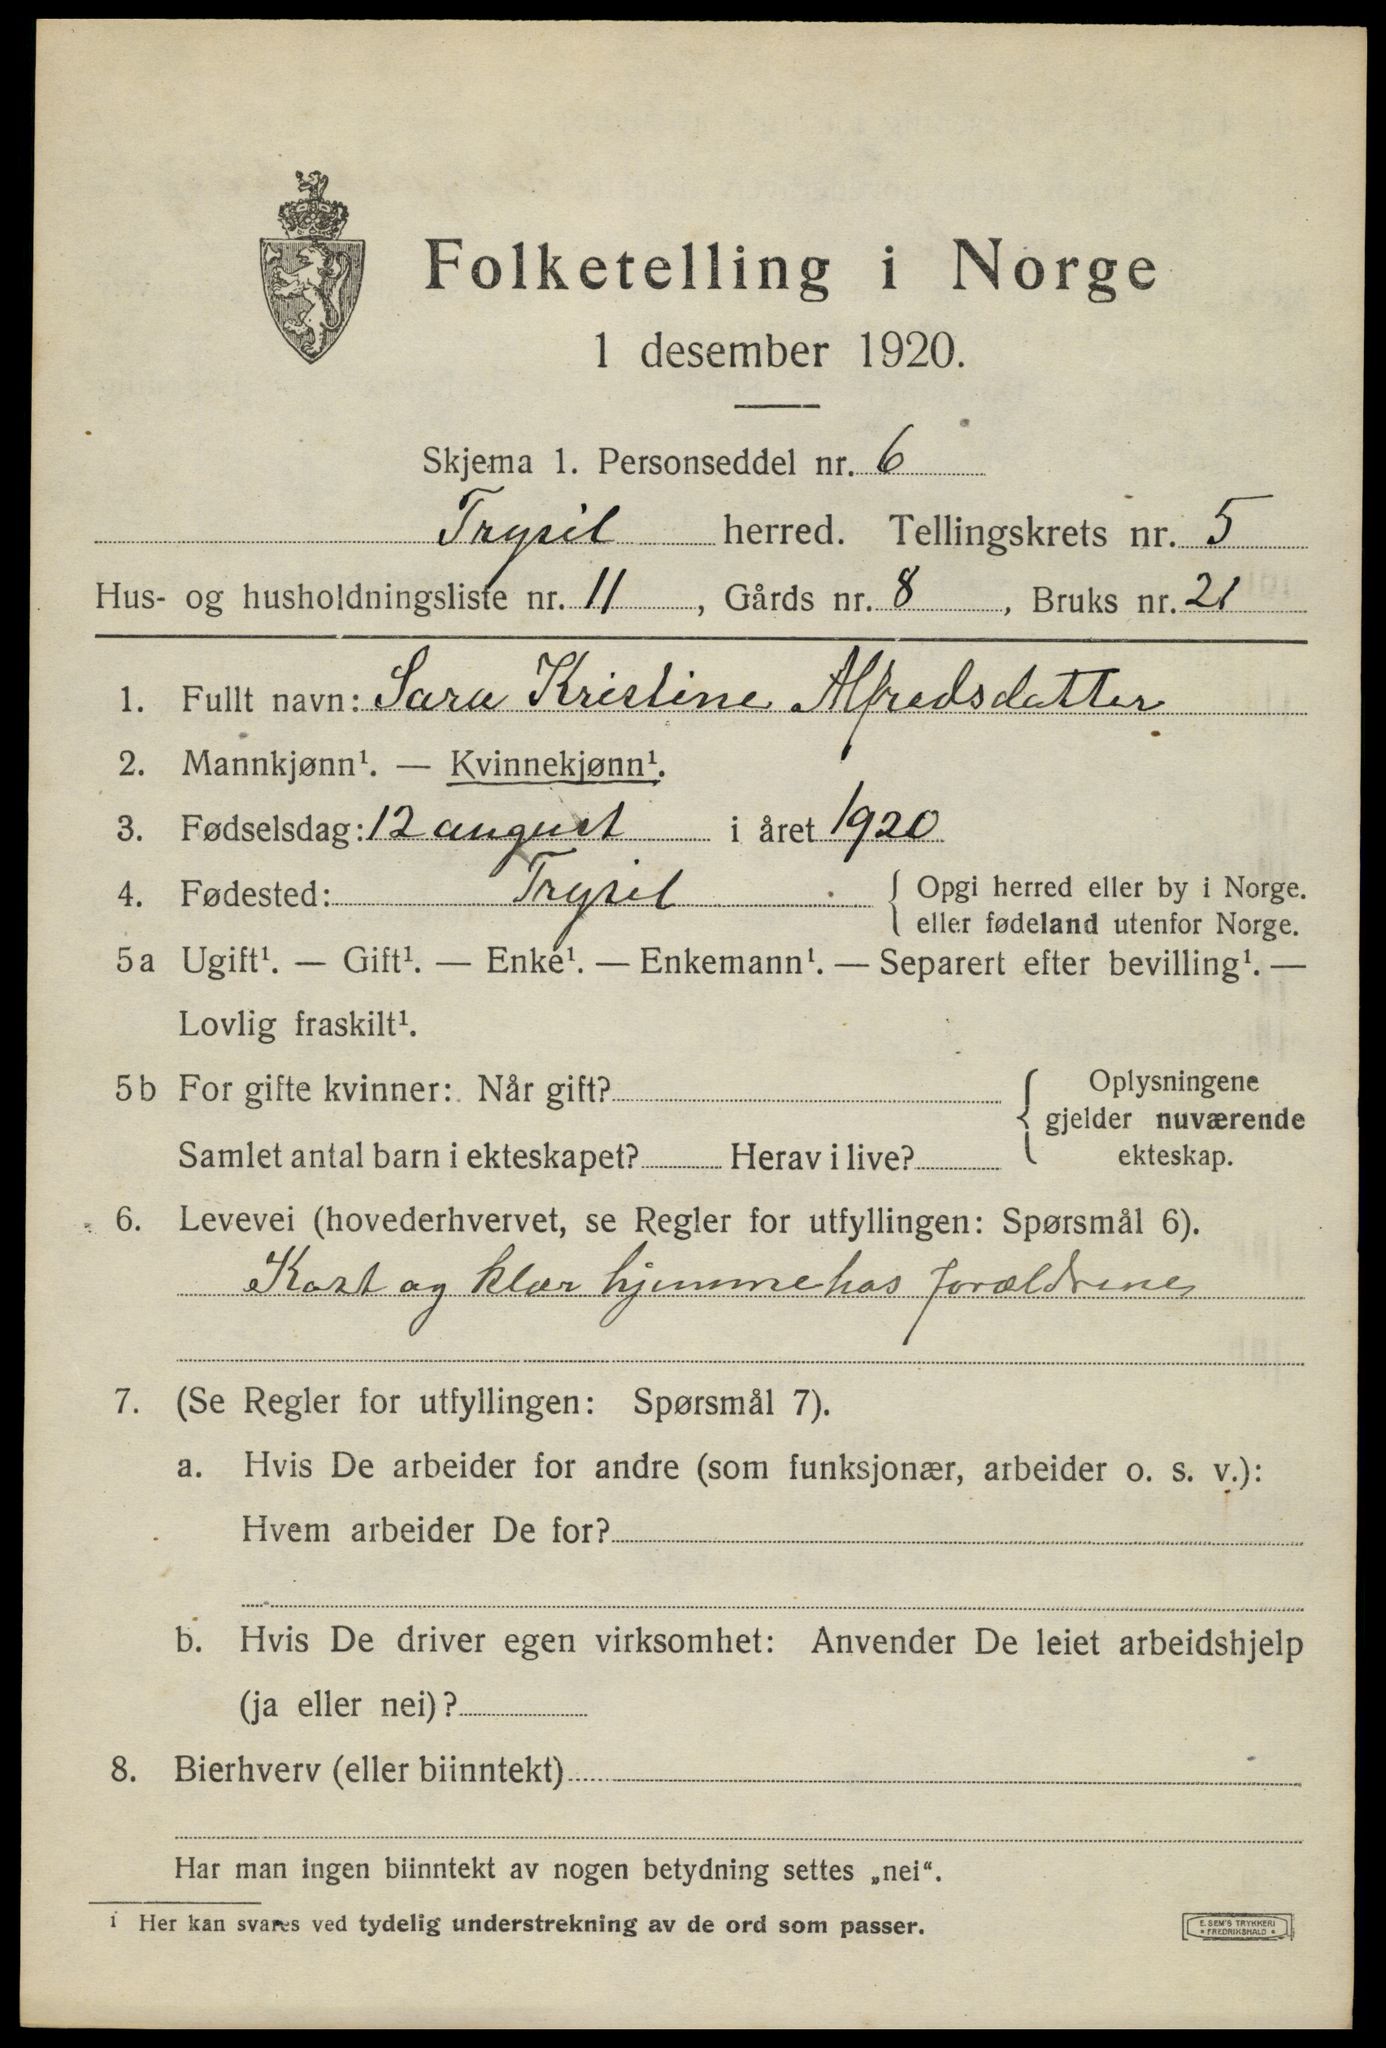 Folketelling i Norge
1 desember 1920.
Skjema 1. Personseddel nr. 6
Trysil herred. Tellingskrets nr. 5
Hus- og husholdningsliste nr. 11, Gårds nr. 8, Bruks nr. 21
1. Fullt navn: Sara Kristine Alfredsdatter
2. Mannkjønn¹. — Kvinnekjønn¹.
3. Fødselsdag: 12 august i året 1920
4. Fødested: Trysil { Opgi herred eller by i Norge.
{ eller fødeland utenfor Norge.
5a Ugift¹. — Gift¹. — Enke¹. — Enkemann¹. — Separert efter bevilling¹. —
Lovlig fraskilt¹.
5b For gifte kvinner: Når gift?
Samlet antal barn i ekteskapet? Herav i live?
Oplysningene
gjelder nuværende
ekteskap.
6. Levevei (hovederhvervet, se Regler for utfyllingen: Spørsmål 6).
Kost og klær hjemme hos forældrene
7. (Se Regler for utfyllingen: Spørsmål 7).
a. Hvis De arbeider for andre (som funksjonær, arbeider o. s. v.):
Hvem arbeider De for?
b. Hvis De driver egen virksomhet: Anvender De leiet arbeidshjelp
(ja eller nei)?
8. Bierhverv (eller biinntekt)
Har man ingen biinntekt av nogen betydning settes „nei“.
¹ Her kan svares ved tydelig understrekning av de ord som passer.
E. SEM'S TRYKKERI
FREDRIKSHALD